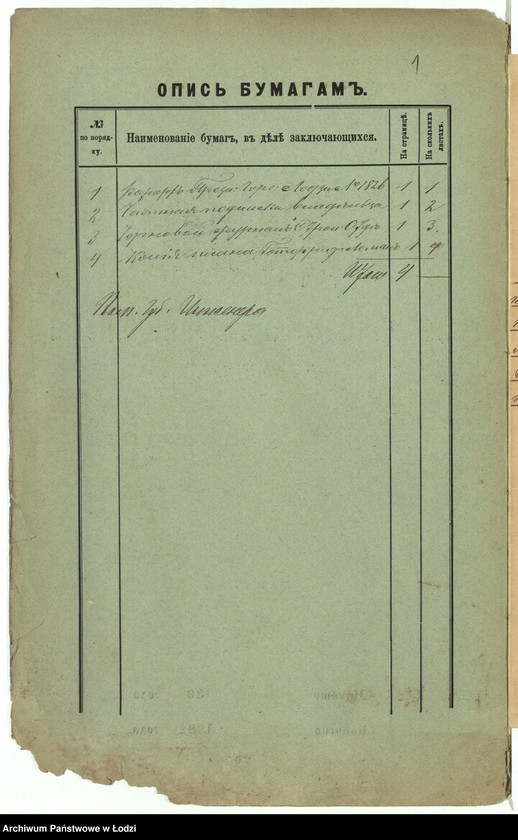 1
ОПИСЬ БУМАГАМЪ.
№ по порядку.
Наименованіе бумагъ, въ дѣлѣ заключающихся.
На страницѣ.
На сколькихъ листахъ.
1 Рапортъ През: Гор: Лодзи № 1826 1 1
2 подписка владѣльца 1 2
3 1 3.
4 Копія плана 1 4
Итого 4 —
Исп. Губ. Инженера
188 года
188 года
Archiwum Państwowe w Łodzi